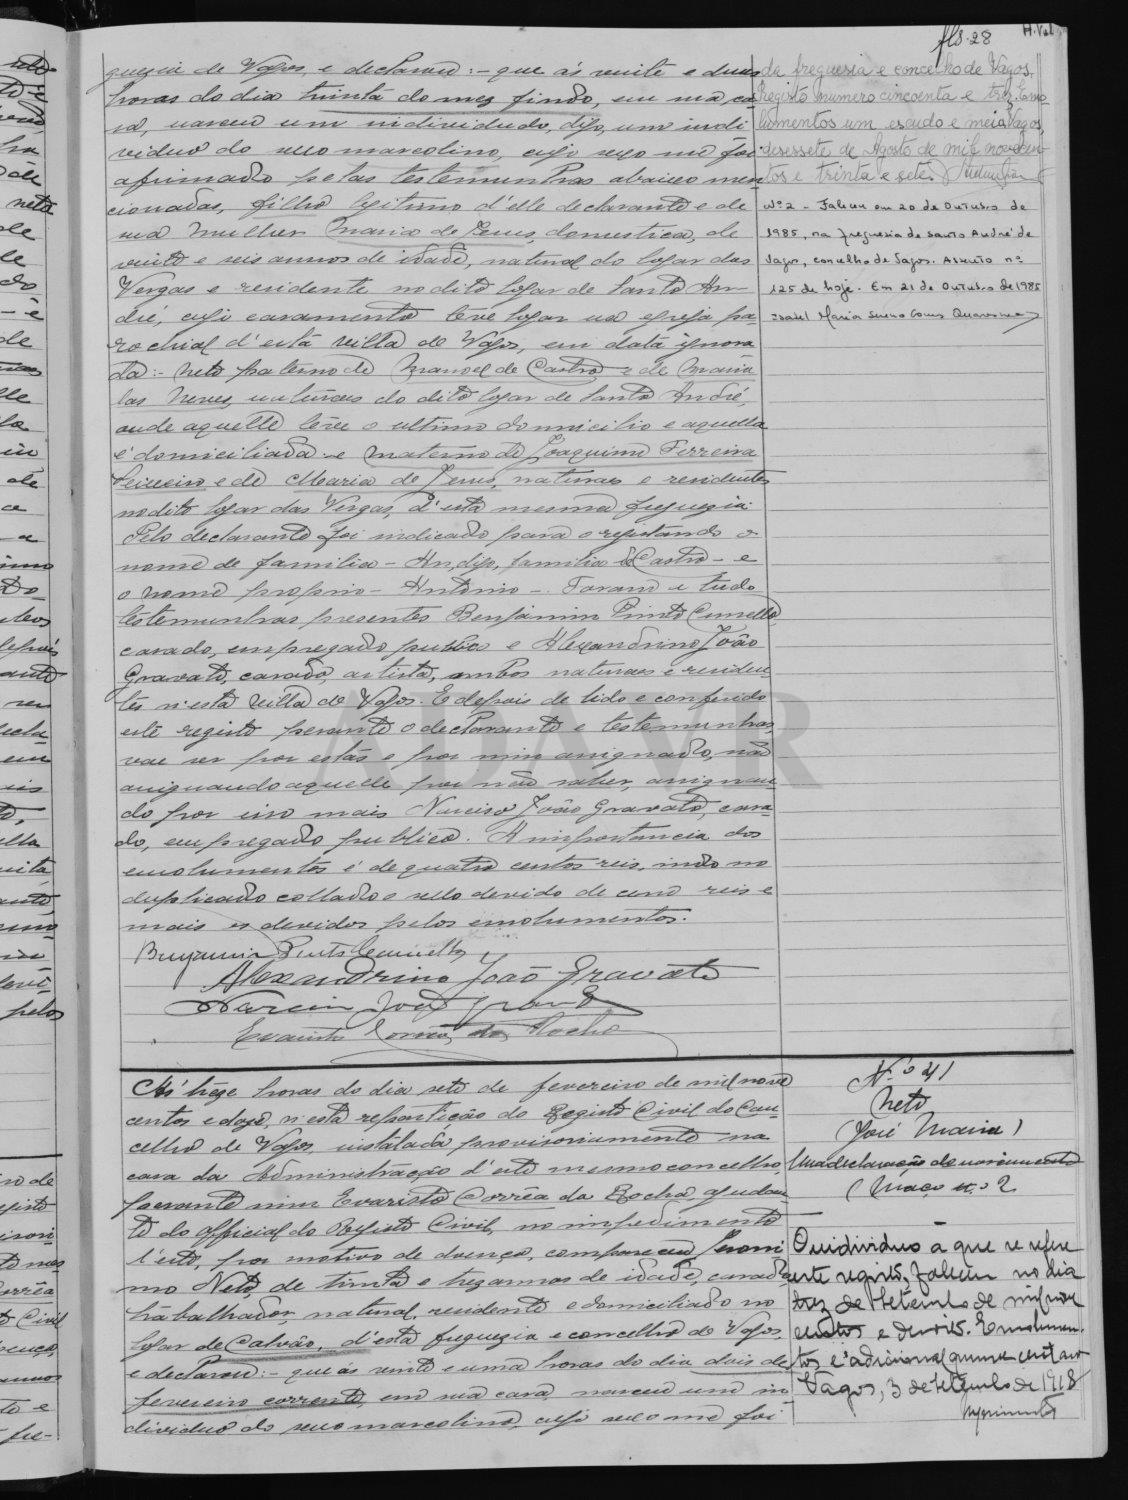 fls. 28
guezia de Vagos, e declarou:- que ás vinte e duas
horas do dia trinta do mez findo, em sua ca-
sa, nasceu um individudo, digo, um indi
viduo do sexo masculino, cujo sexo me foi
afirmado pelas testemunhas abaixo men
cionadas, filho legitimo d'elle declarante e de
sua mulher Maria de Jesus, domestica, de
vinte e seis annos de idade, natural do logar das
Vergas e residente no dito logar de Santo An-
dré, cujo casamento teve logar na egreja pa-
rochial d'esta villa de Vagos, em data ignora
da:- neto paterno de Manoel de Castro e de Maria
das Neves, naturaes do dito logar de Santo André,
onde aquelle teve o ultimo domicilio e aquella
é domiciliada e materno de Joaquim Ferreira
Teixeira e de Maria de Jesus, naturaes e residentes
no dito logar das Vergas, d'esta mesma freguezia.
Pelo declarante foi indicado para o registando o
nome de familia - An, digo, familia de Castro - e
o nome proprio - Antonio -. Foram a tudo
testemunhas presentes Benjamim Pinto Camello,
casado, empregado publico e Alexandrino João
Gravato, casado, artista, ambos naturaes e residen
tes n'esta villa de Vagos. E depois de lido e conferido
este registo perante o declarante e testemunhas,
vae ser por estas e por mim assignado, não
assignando aquelle por não saber, assignan
do por isso mais Narciso João Gravato, casa
do, empregado publico. A importancia dos
emolumentos é de quatro centos reis, indo no
duplicado collado o sello devido de cem reis e
mais os devidos pelos emolumentos.
Benjamim Pinto Camello
Alexandrino João Gravato
Narciso João Gravato
Evaristo Corrêa da Rocha
da freguesia e concelho de Vagos,
Registo numero cincoenta e trez. Emo
lumentos um escudo e meio. Vagos,
desessete de Agosto de mil novecen
tos e trinta e sete.
Nº 2 - Faleceu em 20 de Outubro de
1985, na freguesia de Santo André de
Vagos, concelho de Vagos. Assento nº
125 de hoje. Em 21 de Outubro de 1985
Ás treze horas do dia sete de fevereiro de mil nove
centos e doze, n'esta repartição do Registo Civil do Con-
celho de Vagos, instalada provisoriamente na
casa da Administração d'este mesmo concelho,
perante mim Evaristo Corrêa da Rocha, ajudan
te do official do Registo Civil, no impedimento
d'este, por motivo de doença, compareceu Jeroni
mo Neto, de trinta e trez annos de idade, casado,
trabalhador, natural, residente e domiciliado no
logar de Calvão, d'esta freguezia e concelho de Vagos,
e declarou:- que ás vinte e uma horas do dia dois de
fevereiro corrente, em sua casa, nasceu um in
dividuo do sexo masculino, cujo sexo me foi
Nº 41
Neto
(José Maria)
Uma declaração de nascimento
(Maço nº 2
O individuo a que se refere
este registo, faleceu no dia
trez de Setembro de mil nove
centos e dezoito. Emolumen-
tos e adicional quinze centavos
Vagos, 3 de Setembro de 1918